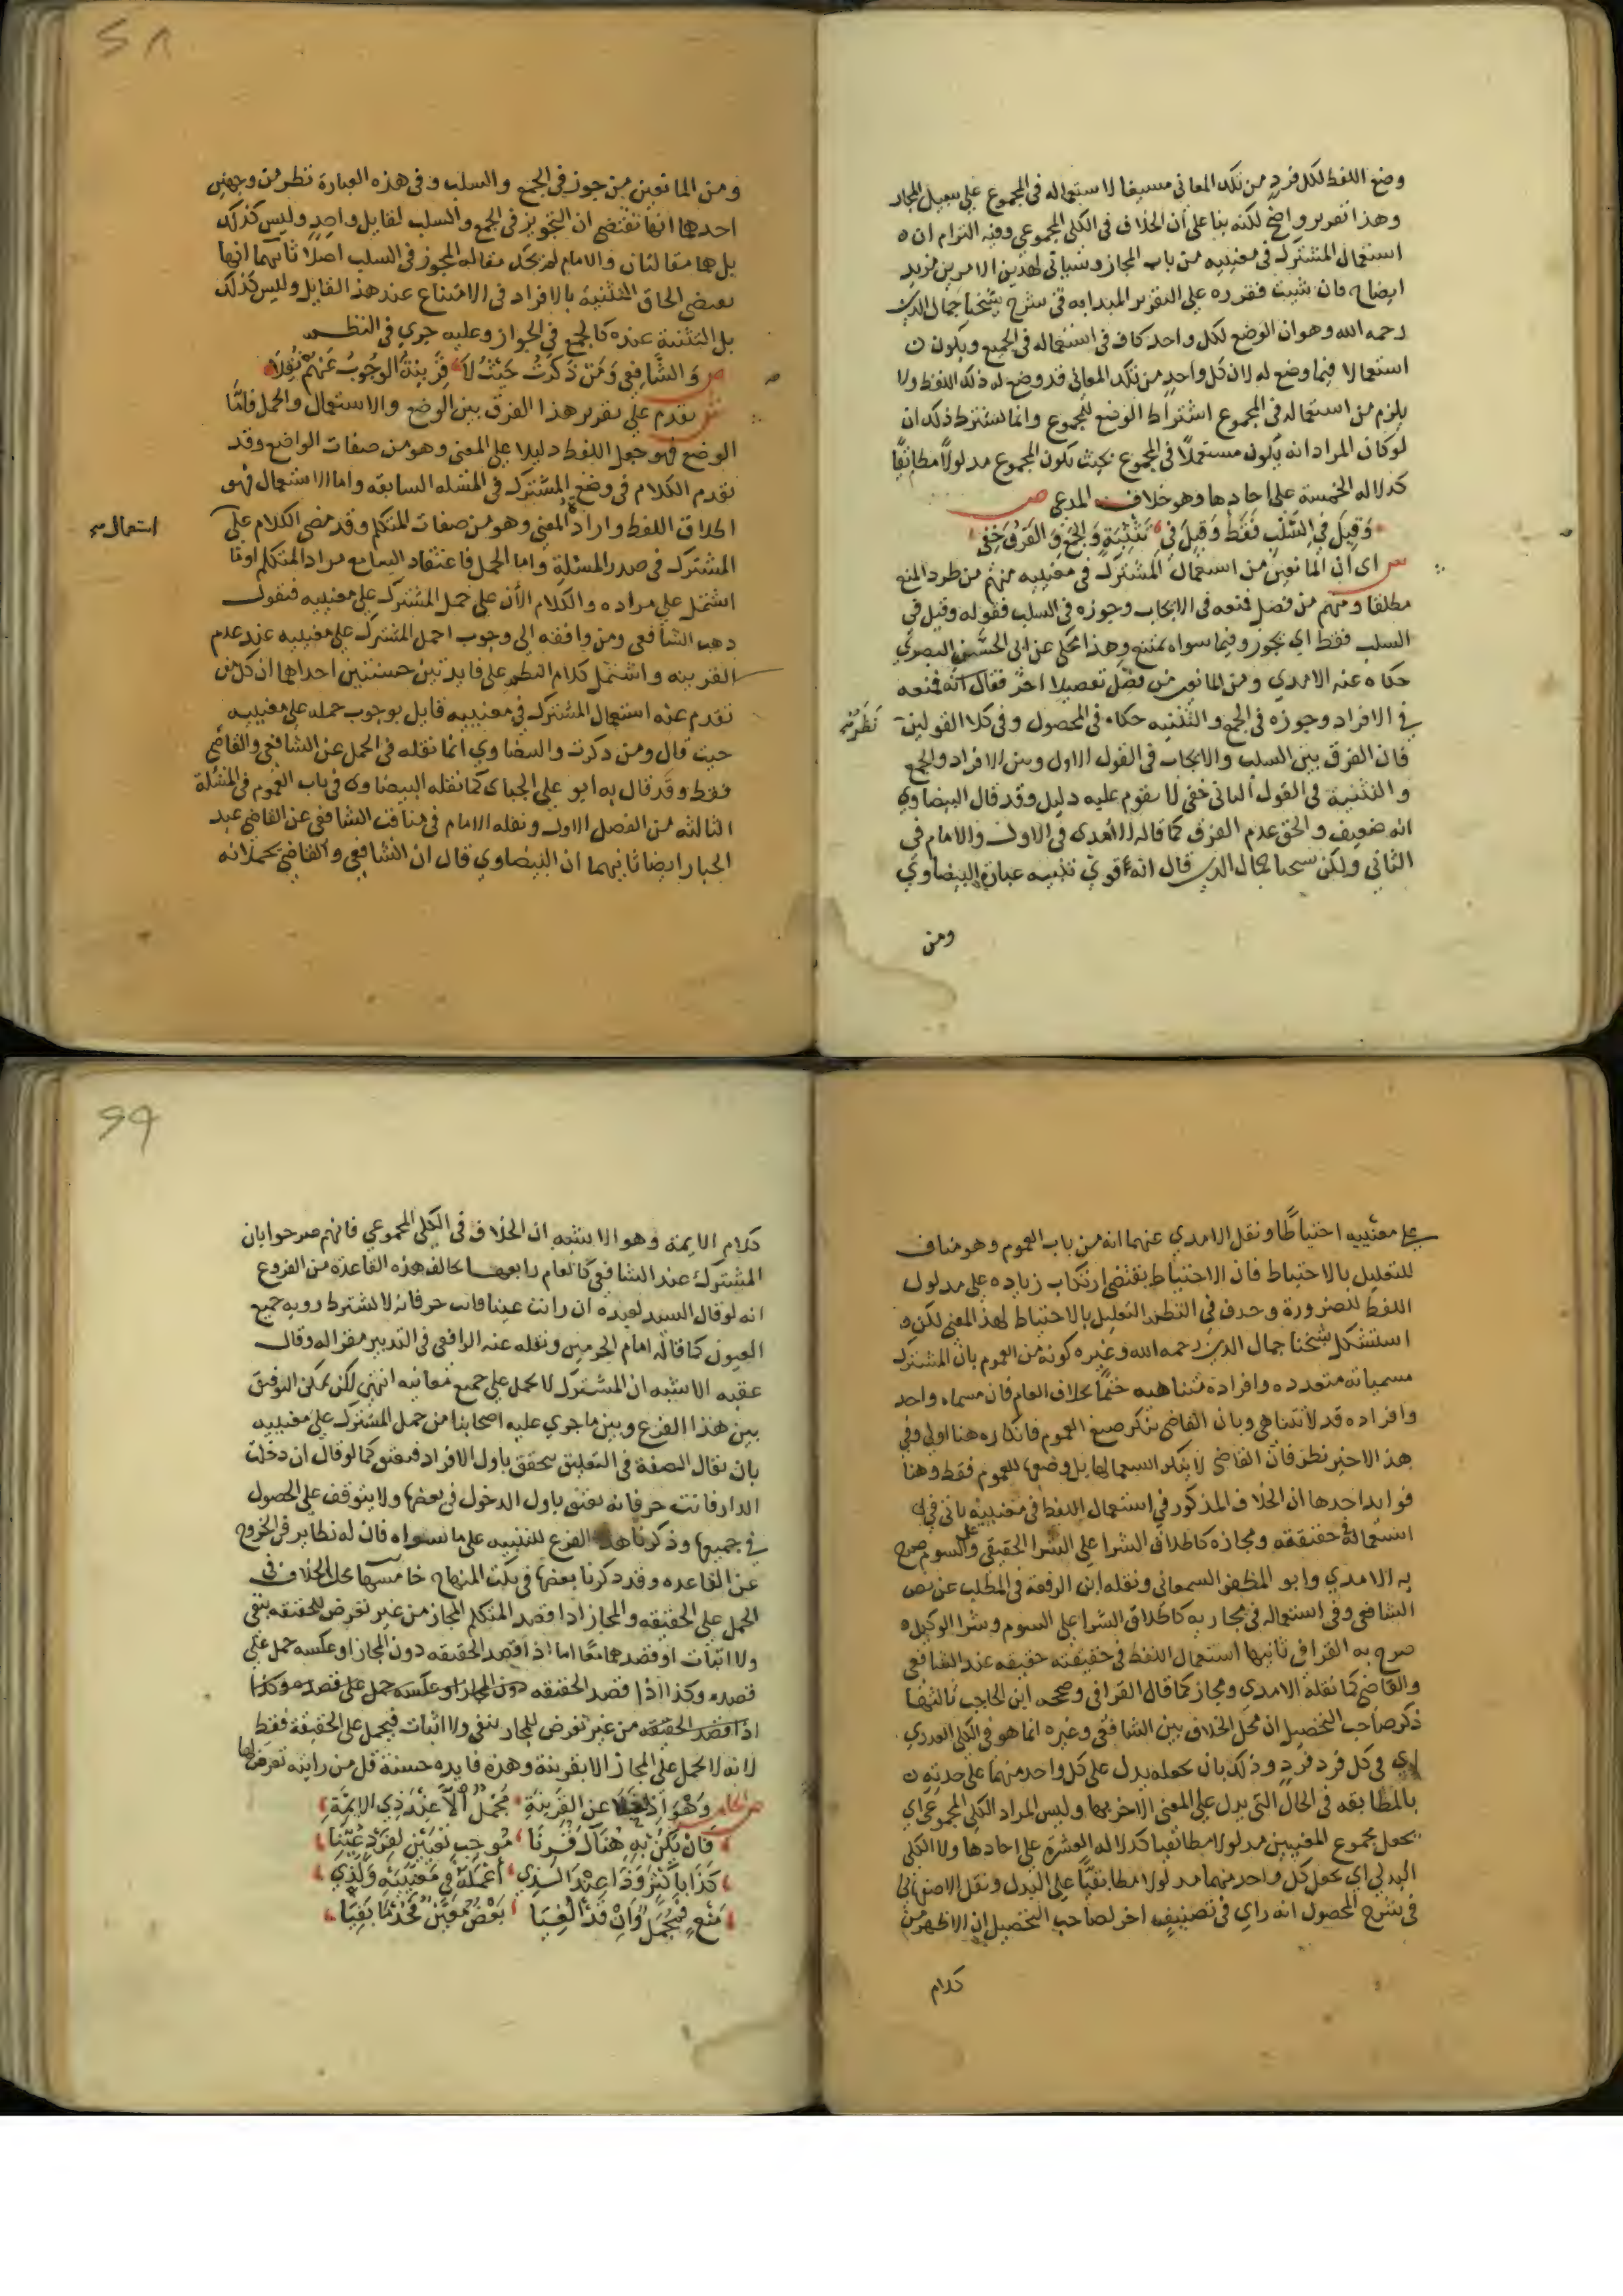 وضع اللفظ لكل فرد من تلك المعاني مسبغا لاستعماله في المجموع علي سبيل المجاز
وهذا تقرير واضح لكنه بنا علي ان الخلاف في الكلي المجموعي وفيه التزام ان
استعمال المشترك في معنييه من باب المجاز وسياتي لهذين الامرين مزيد
ايضاح فان شيت فقرره علي التقرير المبدا به في شرح شيخنا جمال الدين
رحمه الله وهو ان الوضع لكل واحد كاف في استعماله في الجميع ويكون
استعمالا فيما وضع له لان كل واحد من تلك المعاني قد وضع له ذلك اللفظ ولا
يلزم من استعماله في المجموع اشتراط الوضع للمجموع وانما يشترط ذلك ان
لو كان المراد انه يكون مستعملا في المجموع بحيث يكون المجموع مدلولا مطابقيا
كدلالة الخمسة علي احادها وهو خلاف المدعي ص
وَقِيلَ في السَّلْبِ فَقَطْ وَقِيلَ في تَثْنِيَةٍ وَالجَمْعِ وَالفَرْقُ خَفِي
ش اي ان المانعين من استعمال المشترك في معنييه منهم من طرد المنع
مطلقا ومنهم من فصل فمنعه في الايجاب وجوزه في السلب فقوله وقيل في
السلب فقط اي يجوز وفيما سواه يمتنع وهذا محكي عن ابي الحسين البصري
حكاه عنه الامدي ومن المانعين من فصل تفصيلا اخر فقال انه يمنعه
في الافراد وجوزه في الجمع والتثنيه حكاه في المحصول وفي كلا القولين نظر
فان الفرق بين السلب والايجاب في القول الاول وبين الافراد والجمع
والتثنية في القول الثاني خفي لا يقوم عليه دليل وقد قال البيضاوي
انه ضعيف والحق عدم الفرق كما قاله الامدي في الاول والامام في
الثاني ولكن شيخنا جمال الدين قال انه قوي تنبيه عبارة البيضاوي
ومن
٢٨
ومن المانعين من جوز في الجمع والسلب وفي هذه العبارة نظر من وجهين
احدها انها تقتضي ان التجويز في الجمع والسلب لقايل واحد وليس كذلك
بل هما مقالتان والامام لم يحك مقاله المجوز في السلب اصلا ثانيهما انها
تعطي الحاق التثنية بالافراد في الامتناع عند هذا القايل وليس كذلك
بل التثنية عنده كالجمع في الجواز وعليه جري في النظم
ص وَالشَّافِعِي وَمَنْ ذَكَرْتُ حَيْثُ لاَ قَرِينَةُ الوُجُوبُ عَنْهُمْ نُقِلاَ
ش تقدم علي تقرير هذا الفرق بين الوضع والاستعمال والحمل فاما
الوضع فهو جعل اللفظ دليلا علي المعني وهو من صفات الواضع وقد
تقدم الكلام في وضع المشترك في المسئله السابقه واما الاستعمال فهو
اطلاق اللفظ وارادة المعني وهو من صفات المتكلم وقد مضي الكلام علي
استعمال
المشترك في صدر المسئلة واما الحمل فاعتقاد السامع مراد المتكلم او ما
اشتمل علي مراده والكلام الان علي حمل المشترك علي معنييه فنقول
ذهب الشافعي ومن وافقه الي وجوب احمل المشترك علي معنييه عند عدم
القرينه واشتمل كلام النظم علي فايدتين حسنتين احداها ان كل من
تقدم عنه استعمال المشترك في معنييه قايل بوجوب حمله علي معنييه
حيث قال ومن ذكرت والبيضاوي انما نقله في الحمل عن الشافعي والقاضي
فقط وقد قال به ابو علي الجباي كما نقله البيضاوي في باب العموم في المسئلة
الثالثه من الفصل الاول ونقله الامام في مناقب الشافعي عن القاضي عبد
الجبار ايضا ثانيهما ان البيضاوي قال ان الشافعي والقاضي يحملانه
علي معنييه احتياطا ونقل الامدي عنهما انه من باب العموم وهو مناف
للتعليل بالاحتياط فان الاحتياط يقتضي ارتكاب زياده علي مدلول
اللفظ للضرورة وحذف في النظم التعليل بالاحتياط لهذا المعني لكن
استشكل شيخنا جمال الدين رحمه الله وغيره كونه من العموم بان المشترك
مسمياته متعدده وافراده متناهيه حتما بخلاف العام فان مسماه واحد
وافراده قد لا تتناهي وبان القاضي ينكر صيغ العموم فانكاره هنا اولي وفي
هذا الاخير نظر فان القاضي لا ينكر استعمالها بل وضعها للعموم فقط وهنا
فوايد احدها ان الخلاف المذكور في استعمال اللفظ في معنييه ياتي في
استعماله في حقيقته ومجازه كاطلاق الشرا علي الشرا الحقيقي وعلي السوم صرح
به الامدي وابو المظفر السمعاني ونقله ابن الرفعة في المطلب عن نص
الشافعي وفي استعماله في مجازيه كاطلاق الشرا علي السوم وشرا الوكيل
صرح به القرافي ثانيها استعمال اللفظ في حقيقته حقيقه عند الشافعي
والقاضي كما نقله الامدي ومجاز كما قال القرافي وصححه ابن الحاجب ثالثها
ذكر صاحب التحصيل ان محل الخلاف بين الشافعي وغيره انما هو في الكلي العددي
اي في كل فرد فرد وذلك بان يجعله يدل علي كل واحد منهما علي حدته
بالمطابقه في الحال التي يدل علي المعني الاخر بها وليس المراد الكلي المجموعي اي
يجعل مجموع المعنيين مدلولا مطابقيا كدلالة العشرة علي احادها ولا الكلي
البدلي اي يجعل كل واحد منهما مدلولا مطابقيا علي البدل ونقل الاصفهاني
في شرح المحصول انه راي في تصنيف اخر لصاحب التحصيل ان الاظهر من
كلام
٢٩
كلام الايمة وهو الاشبه ان الخلاف في الكلي المجموعي فانهم صرحوا بان
المشترك عند الشافعي كالعام رابعها خالف هذه القاعدة من الفروع
انه لو قال السيد لعبده ان رايت عينا فانت حر فانه لا يشترط رويه جميع
العيون كما قاله امام الحرمين ونقله عنه الرافعي في التدبير مقرا له وقال
عقبه الاشبه ان المشترك لا يحمل علي جميع معانيه انتهي لكن يمكن التوفيق
بين هذا الفرع وبين ما جري عليه اصحابنا من حمل المشترك علي معنييه
بان يقال الصفة في التعليق تتحقق باول الافراد فيعتق كما لو قال ان دخلت
الدار فانت حر فانه يعتق باول الدخول في بعضها ولا يتوقف علي الحصول
في جميعها وذكرنا هذا الفرع للتنبيه علي ما سواه فان له نظاير في الخروج
عن القاعده وقد ذكرنا بعضها في نكت المنهاج خامسها محل الخلاف في
الحمل علي الحقيقه والمجاز اذا قصد المتكلم المجاز من غير تعرض للحقيقه بنفي
ولا اثبات او قصدهما معا اما اذا قصد الحقيقه دون المجاز او عكسه حمل علي
قصده وكذا اذا قصد الحقيقه دون المجاز او عكسه حمل علي قصده وكذا
اذا قصد الحقيقه من غير تعرض للمجاز بنفي ولا اثبات فيحمل علي الحقيقة فقط
لانه لا يحمل علي المجاز الا بقرينة وهذه فايده حسنة قل من رايته تعرض لها
وَهْوَ اِذَا خَلاَ عن القَرِينَةِ مُجْمَلٌ الاَّ عِنْدَ ذِي الايمَّةِ
فَاِنْ يَكُنْ بِهِ هُنَاكَ قُرِنَا مُوجِبُ تَعْيِينٍ لِفَرْدٍ عُيِّنَا
كَذَا بِاَكْثَرَ وَذَا عِنْدَ الَّذِي اَعْمَلَهُ في مَعْنَيَيْهِ وَلِذِي
مَنْعٍ فَمُجْمَلٌ وَاِنْ قَدْ اُلْغِيَا بَعْضٌ مُعَيَّنٌ فَخُذْ مَا بَقِيَا